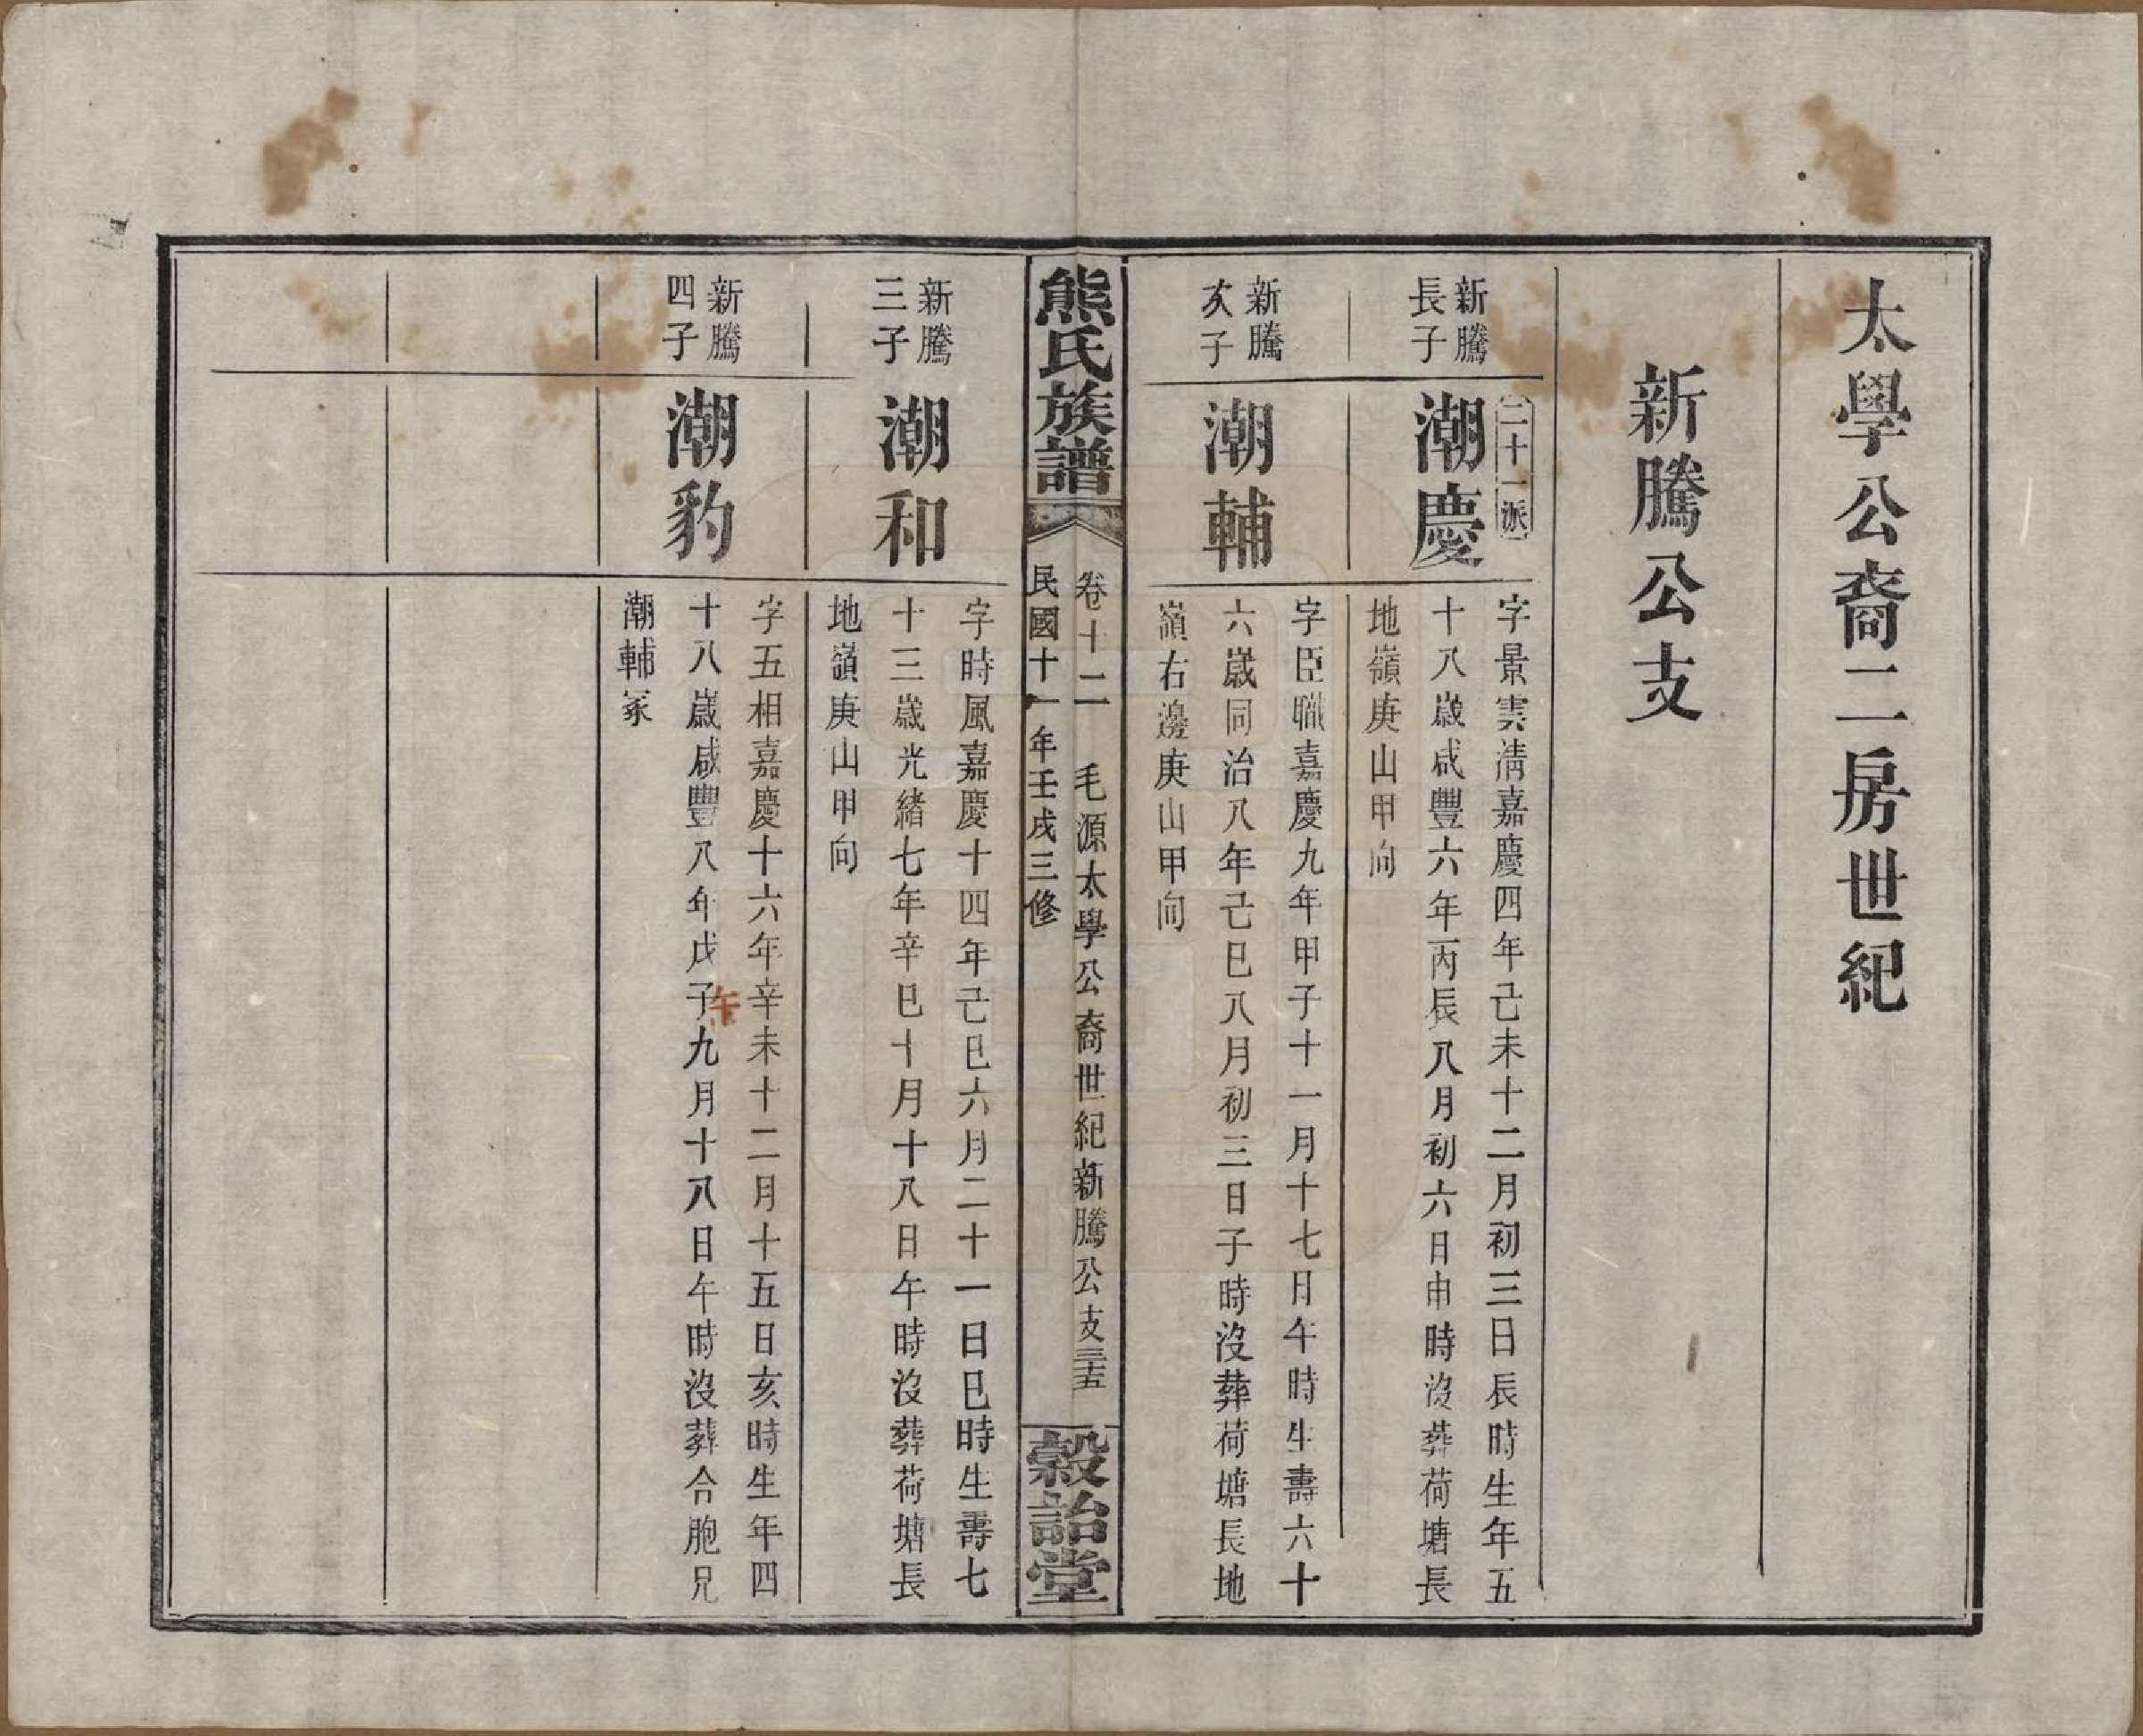 太學公裔二房世紀
新騰公支
二十一派
新騰
長子
潮慶
字景雲淸嘉慶四年己未十二月初三日辰時生年五
十八歲咸豐六年丙辰八月初六日申時沒葬荷塘長
地嶺庚山甲向
新騰
次子
潮輔
字臣職嘉慶九年甲子十一月十七日午時生壽六十
六歲同治八年己巳八月初三日子時沒葬荷塘長地
嶺右邊庚山甲向
熊氏族譜
卷十二 毛源太學公裔世紀新騰公支 三十五
民國十一年壬戌三修
穀詒堂
新騰
三子
潮和
字時風嘉慶十四年己巳六月二十一日巳時生壽七
十三歲光緒七年辛巳十月十八日午時沒葬荷塘長
地嶺庚山甲向
新騰
四子
潮豹
字五相嘉慶十六年辛未十二月十五日亥時生年四
十八歲咸豐八年戊子九月十八日午時沒葬合胞兄
午
潮輔冢